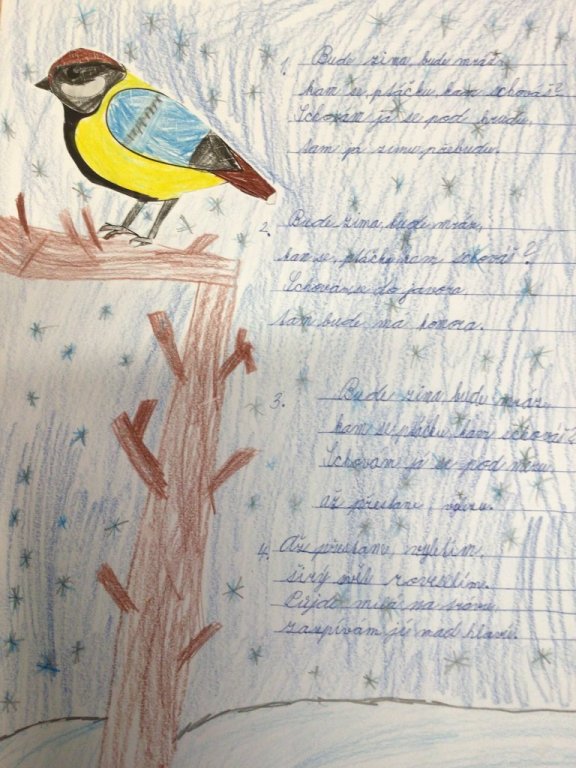 1. Bude zima, bude mráz,
kam se, ptáčku, kam schováš?
Schovám já se pod hrudu,
tam já zimu přebudu.
2. Bude zima, bude mráz,
kam se, ptáčku, kam schováš?
Schovám se do javora
tam bude má komora.
3. Bude zima bude mráz
kam se, ptáčku, kam schováš?
Schovám já se pod
až přestane,
4. Až přestane, vyletím,
širý svět rozveselím.
Půjde milá na
zazpívám jí nad hlavú.